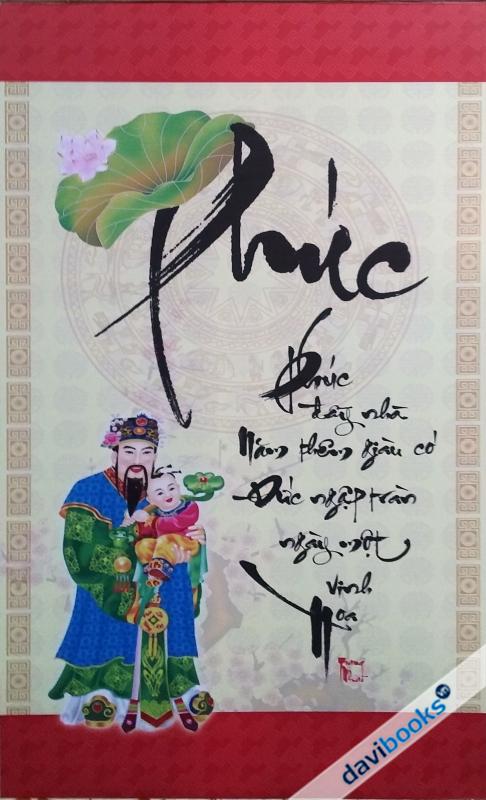 Phúc
Phúc
đầy nhà
Năm thêm giàu có
Đức ngập tràn
ngày một
Vinh
Hoa
davibooks.vn